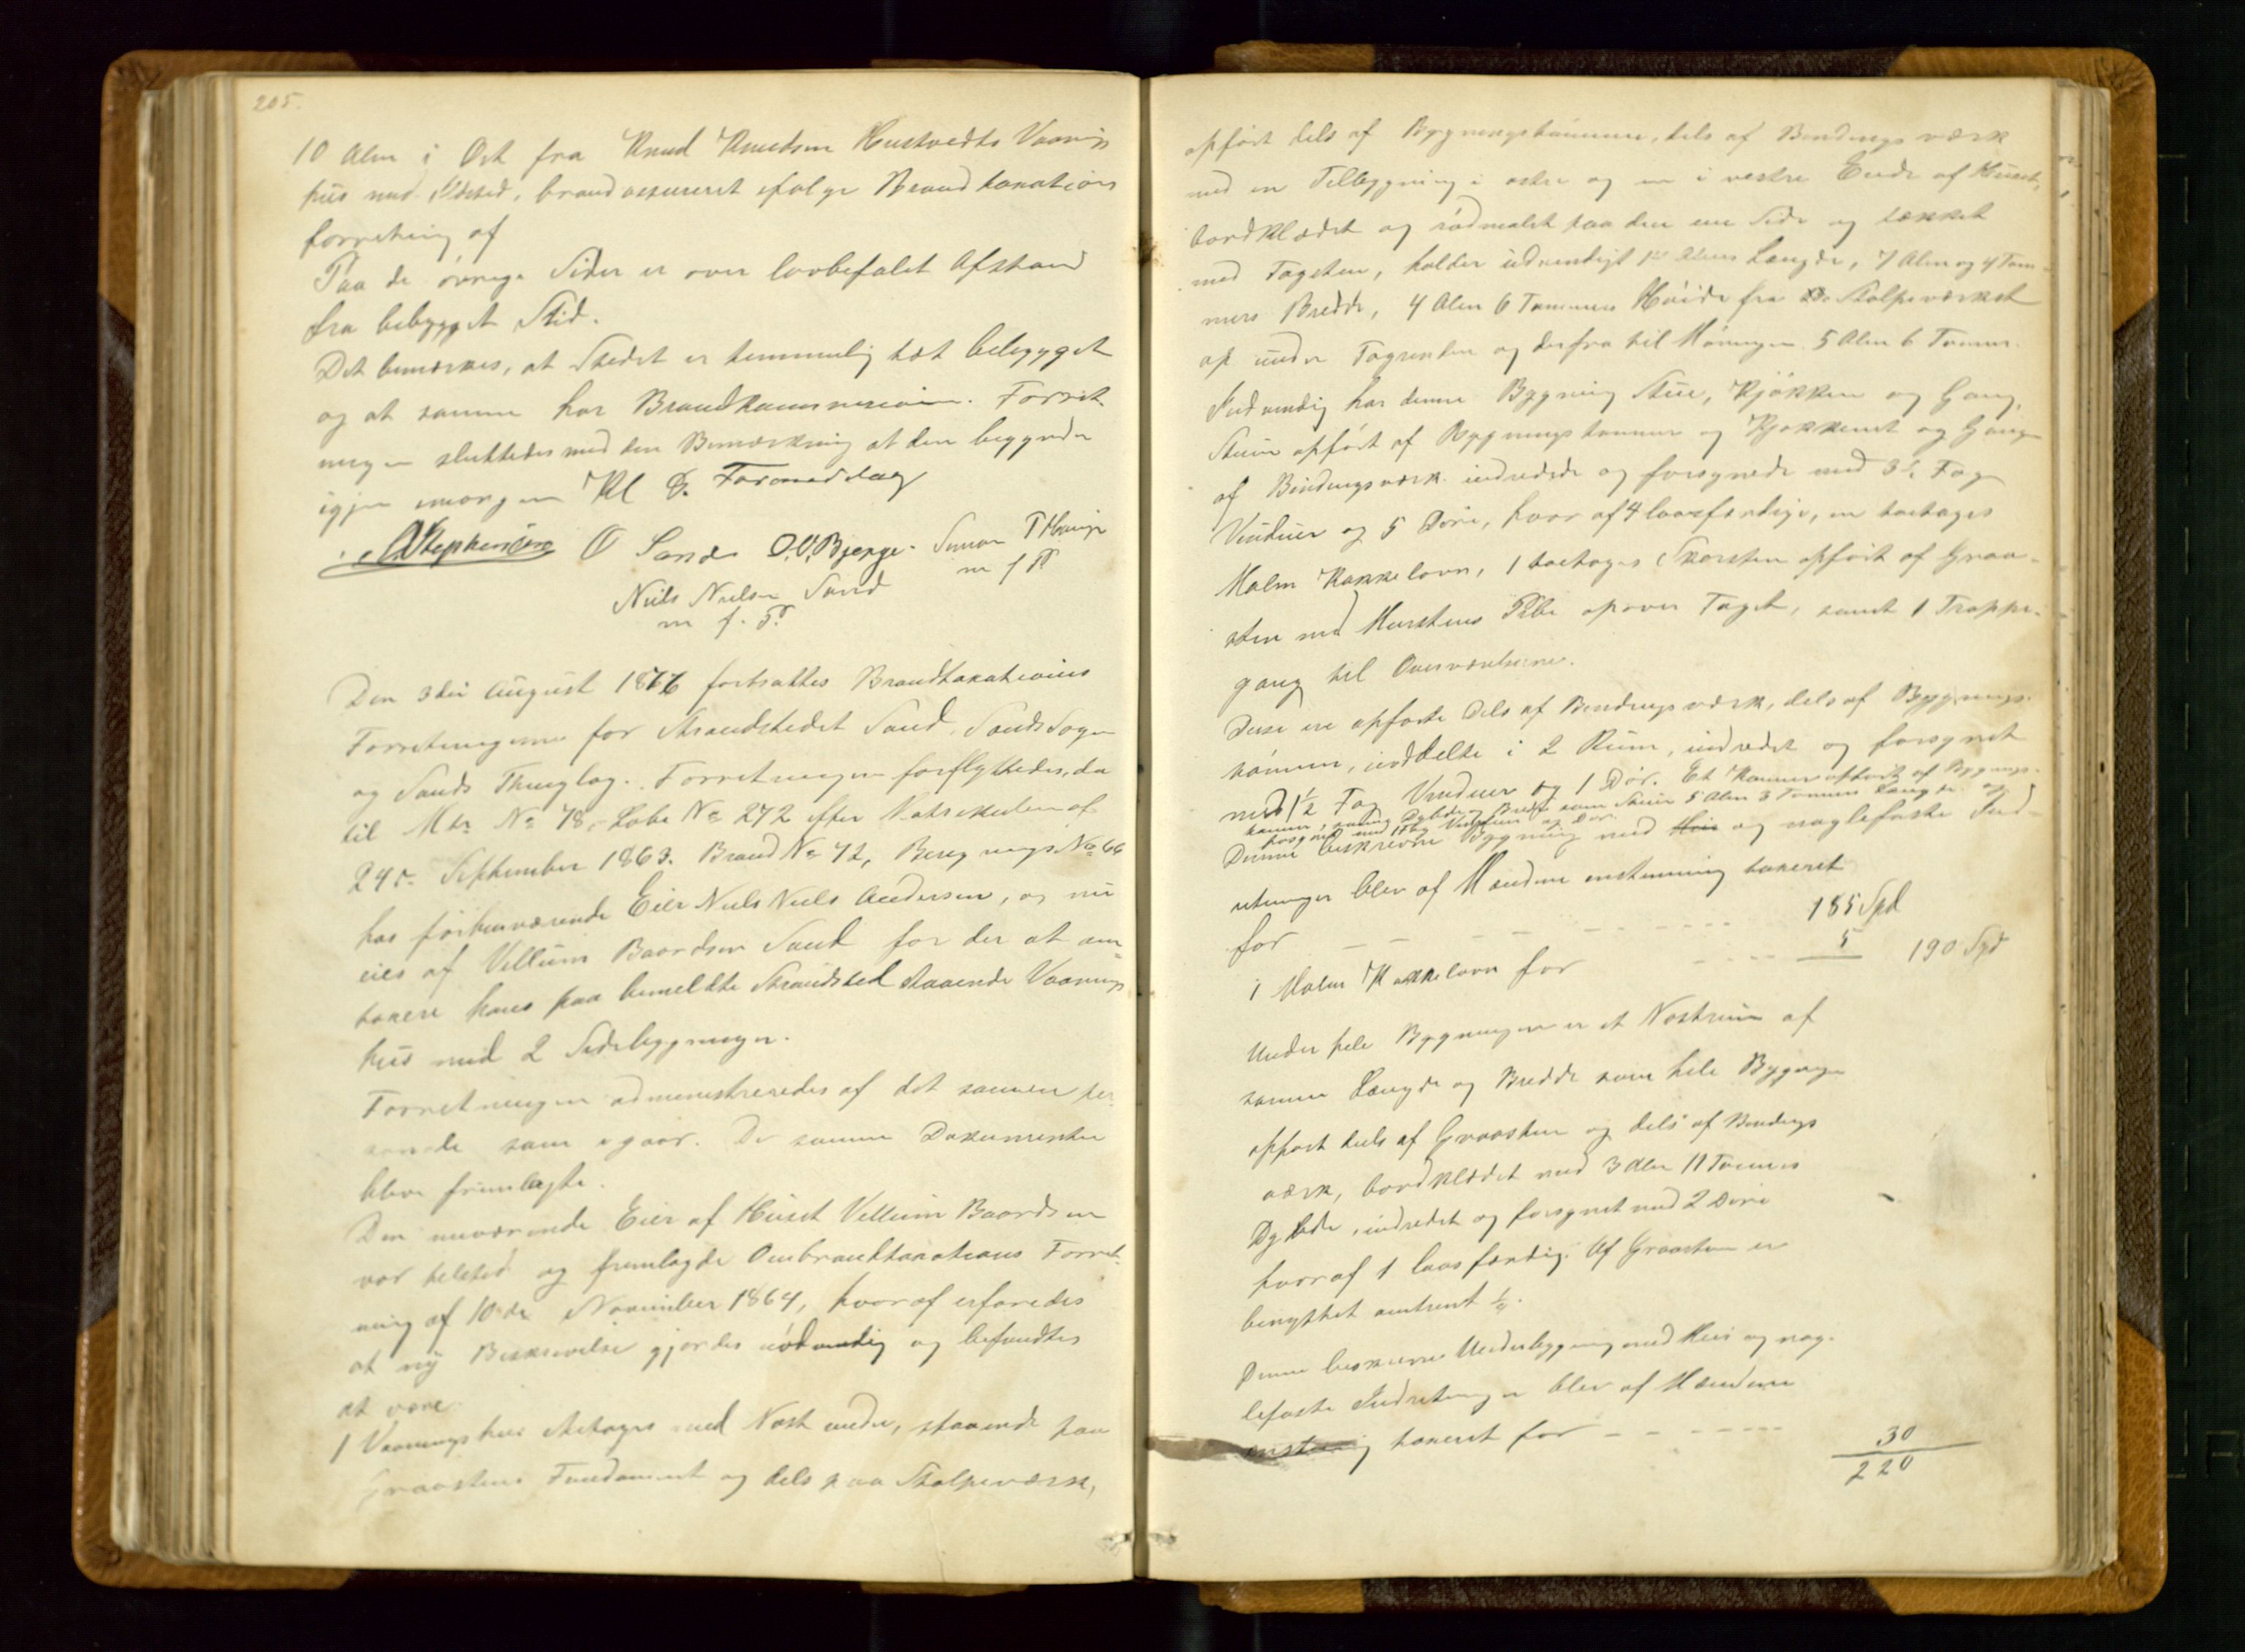 205.
10 Alen i Øst fra Knud Knudsen Hustvedts Vaanings
huus med Ildsted, brandassureret ifølge Brandtaxations
forretning af
Paa de øvrige Sider er over lovbefalet Afstand
fra bebygget Sted.
Det bemærkes, at Stedet er temmelig tæt bebygget
og at samme har Brandkommission. Forret-
ningen sluttedes med den Bemærkning at den begynder
igjen imorgen Kl 8. Formiddag
O Sande O.O. Bjerge. Simon T
m f P
Niels Nielsen Sand
m f. P.
Den 3die August 1876 fortsattes Brandtaxations
Forretningerne for Strandstedet Sand, Sands Sogn
og Sands Thinglag. Forretningen forflyttedes, da
til Mtr No 78, Løbe No 272 efter Matrikulen af
24de September 1863. Brand No 72, Bereg nings No 66
hos forhenværende Eier Niels Niels Andersen, og nu
eies af Villum Baardsen Sand for der at om
taxere hans paa bemeldte Strandsted staaende Vaanings
huus med 2 Sidebygninger.
Forretningen administreredes af det samme per
sonale som igaar. De samme Dokumenter
blev fremlagte.
Den nuværende Eier af Huset Villum Baardsen
var tilsted og fremlagde Ombrandtaxations Forret-
ning af 10de November 1864, hvoraf erfaredes
at ny Beskrivelse gjordes nødvendig og befandtes
at være
1 Vaaningshuus 1 Etages med Nøst under, staaende paa
Graastens Fundament og dels paa Stolpeværk,
opført dels af Bygningstømmer, dels af Bindings værk
med en Tilbygning i østre og en i vestre Ende af Huset,
bordklædet og rødmalet paa den ene Side og tækket
med Tagsten, holder udvendigt Alens Længde, 7 Alen og 4 Tom-
mers Bredde, 4 Alen 6 Tommers Høide fra Stolpeværket
op under Tagrenden og derfra til Møningen 5 Alen 6 Tommer.
Indvendig har denne Bygning Stue, Kjøkken og Gang,
Stuen opført af Bygningstømmer og Kjøkkenet og Gangen
af Bindingsværk indredede og forsynede med 3½ Fag
Vinduer og 5 Døre, hvor af 4 laasfærdige, en toetages
Malm Kakkelovn, 1 toetages Skorsten opført af Graa-
sten med Murstens Pibe opover Taget, samt 1 Trappe-
gang til Overværelserne.
Disse ere opførte dels af Bindingsværk, dels af Bygnings-
tømmer, inddelte i 2 Rum, indredet og forsynet
med 1½ Fag Vinduer og 1 Dør. Et Kammer opført af Bygnings-
tømmer, samme Dybde og Bredde som Stuen 5 Alen 3 Tommers Længde og
forsynet med 1 Fag Vinduer og Dør.
Denne beskrevne Bygning med Huus og naglefaste Ind-
retninger blev af Mændene enstemmig taxeret
for - - - - - - - 185 Spd
1 Malm Kakkelovn for - - - - 5 190 Spd
Under hele Bygningen er et Nøstrum af
samme Længde og Bredde som hele Bygningen
opført dels af Graasten og dels af Bindings
værk, bordklædet med 3 Alen 11 Tommers
Dybde, indredet og forsynet med 2 Døre
hvoraf 1 laasfærdig. Af Graasten er
benyttet omtrent ¼.
Denne beskrevne Underbygning med Huus og nag-
lefaste Indretninger blev af Mændene
enstemmig taxeret for - - - - - - 30
220